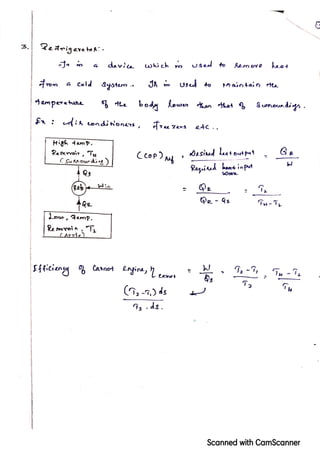 3. Refrigerator:-
-It is a device which is used to Remove heat
from a cold system. It is used to Maintain the
temperature of the body lower than that of Surroundings.
Ex : Air conditioners, freezers etc..
High temp.
Reservoir, TH
(Surrounding)
Q1
Ref
Win
Q2
Low, Temp.
Reservoir, T2
(COP)Ref = Desired heat output / Required input work = QR / W
= QR / QR - Q1 = TL / TH - TL
Efficiency of Carnot Engine, η carnot = W / Q1 = T2 - T1 / T2 , TH - TL / TH
(T2 - T1) ds / T2 . ds.
Scanned with CamScanner